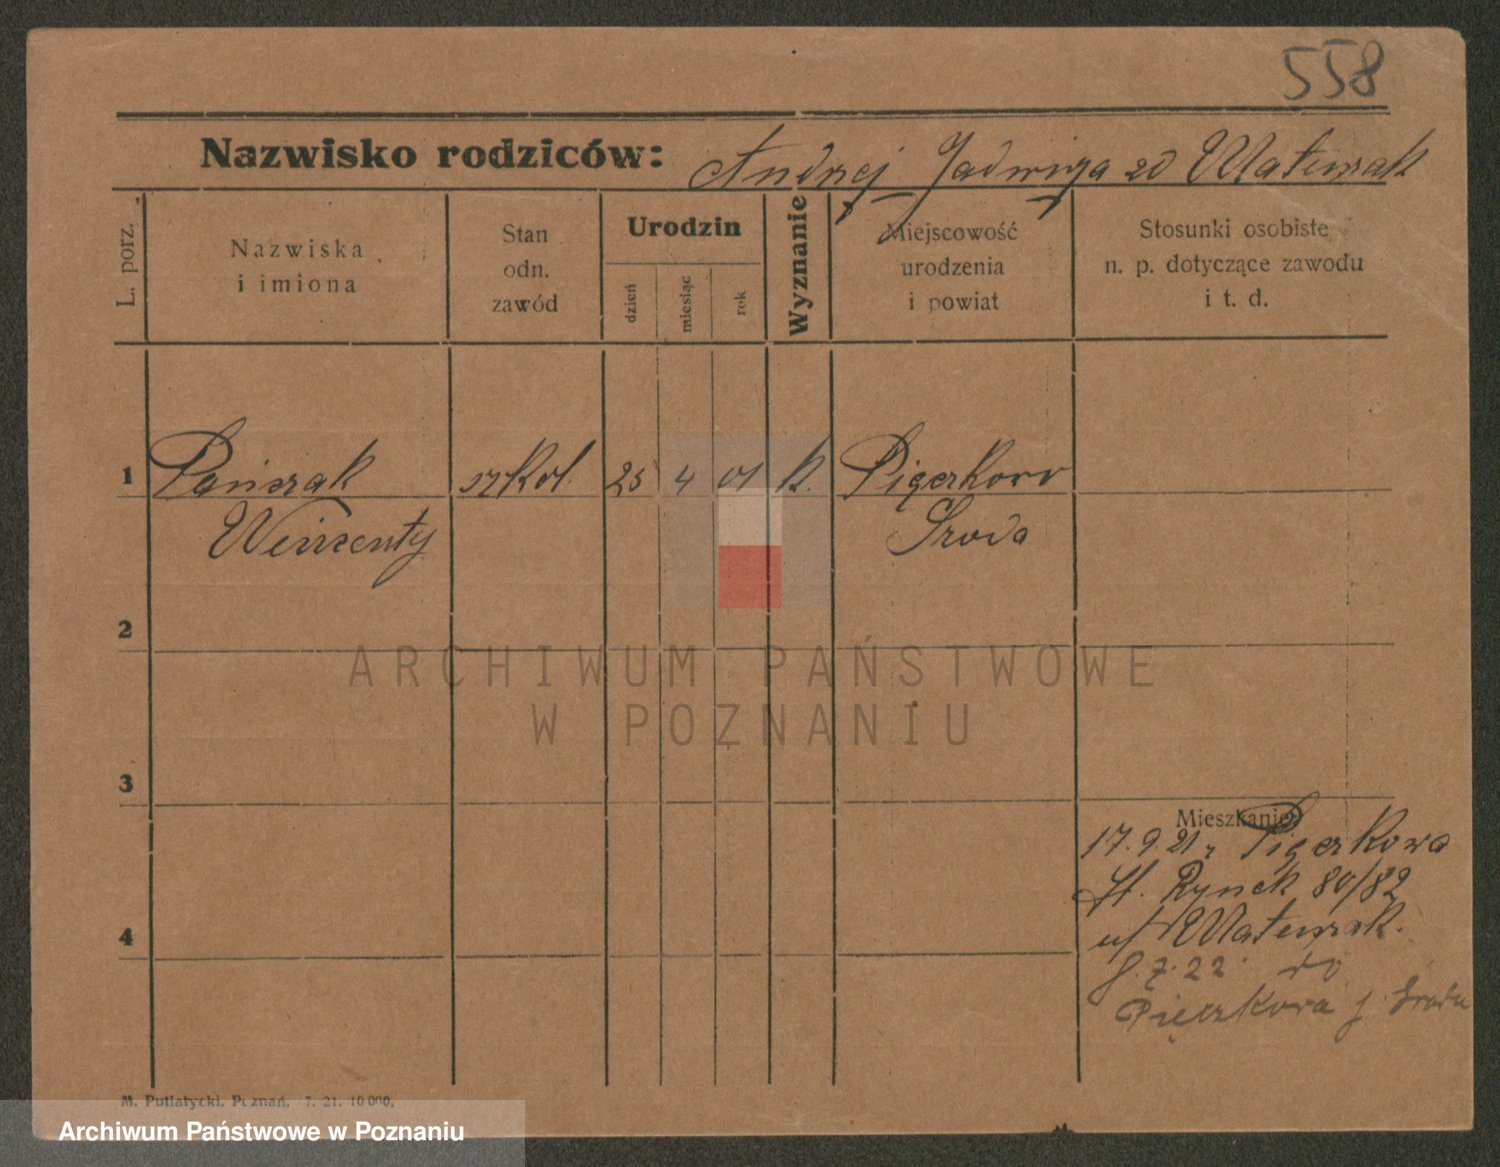 558
Nazwisko rodziców: Andrzej Jadwiga zd Matuszak
L. porz.
Nazwiska i imiona
Stan odn. zawód
Urodzin
dzień
miesiąc
rok
Wyznanie
Miejscowość urodzenia i powiat
Stosunki osobiste n. p. dotyczące zawodu i t. d.
1 Pańczak 25 4 01 k. Pięczkowo
Wincenty Środa
2
ARCHIWUM PAŃSTWOWE
W POZNANIU
3
Mieszkanie
17.9.21 z Pięczkowa
St. Rynek 80/82
4 u/ Matuszak.
8.7.22 do
Pięczkowa p. Środa
M. Putiatycki, Poznań. 7. 21. 10 000.
Archiwum Państwowe w Poznaniu